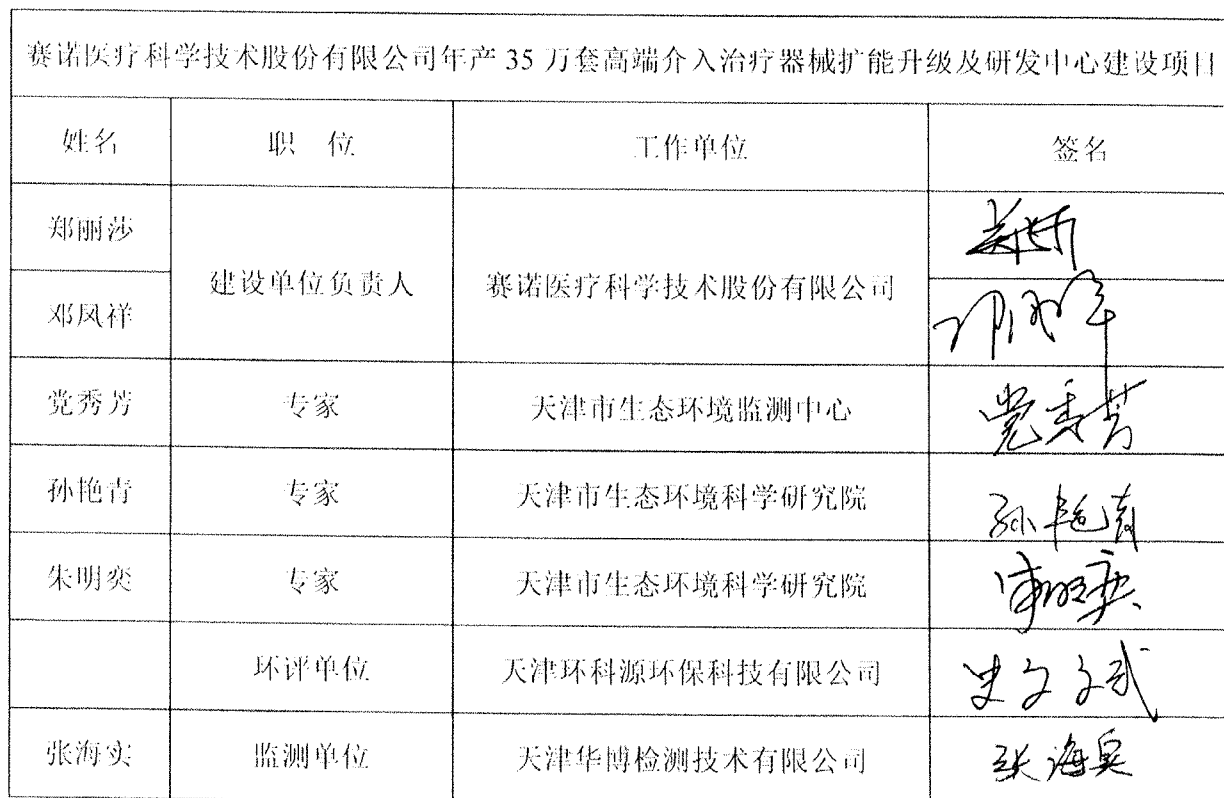 赛诺医疗科学技术股份有限公司年产 35 万套高端介入治疗器械扩能升级及研发中心建设项目
姓名 职 位 工作单位 签名
郑丽莎 建设单位负责人 赛诺医疗科学技术股份有限公司
邓凤祥
党秀芳 专家 天津市生态环境监测中心 党秀芳
孙艳青 专家 天津市生态环境科学研究院 孙艳青
朱明奕 专家 天津市生态环境科学研究院 朱明奕
环评单位 天津环科源环保科技有限公司
张海实 监测单位 天津华博检测技术有限公司 张海实